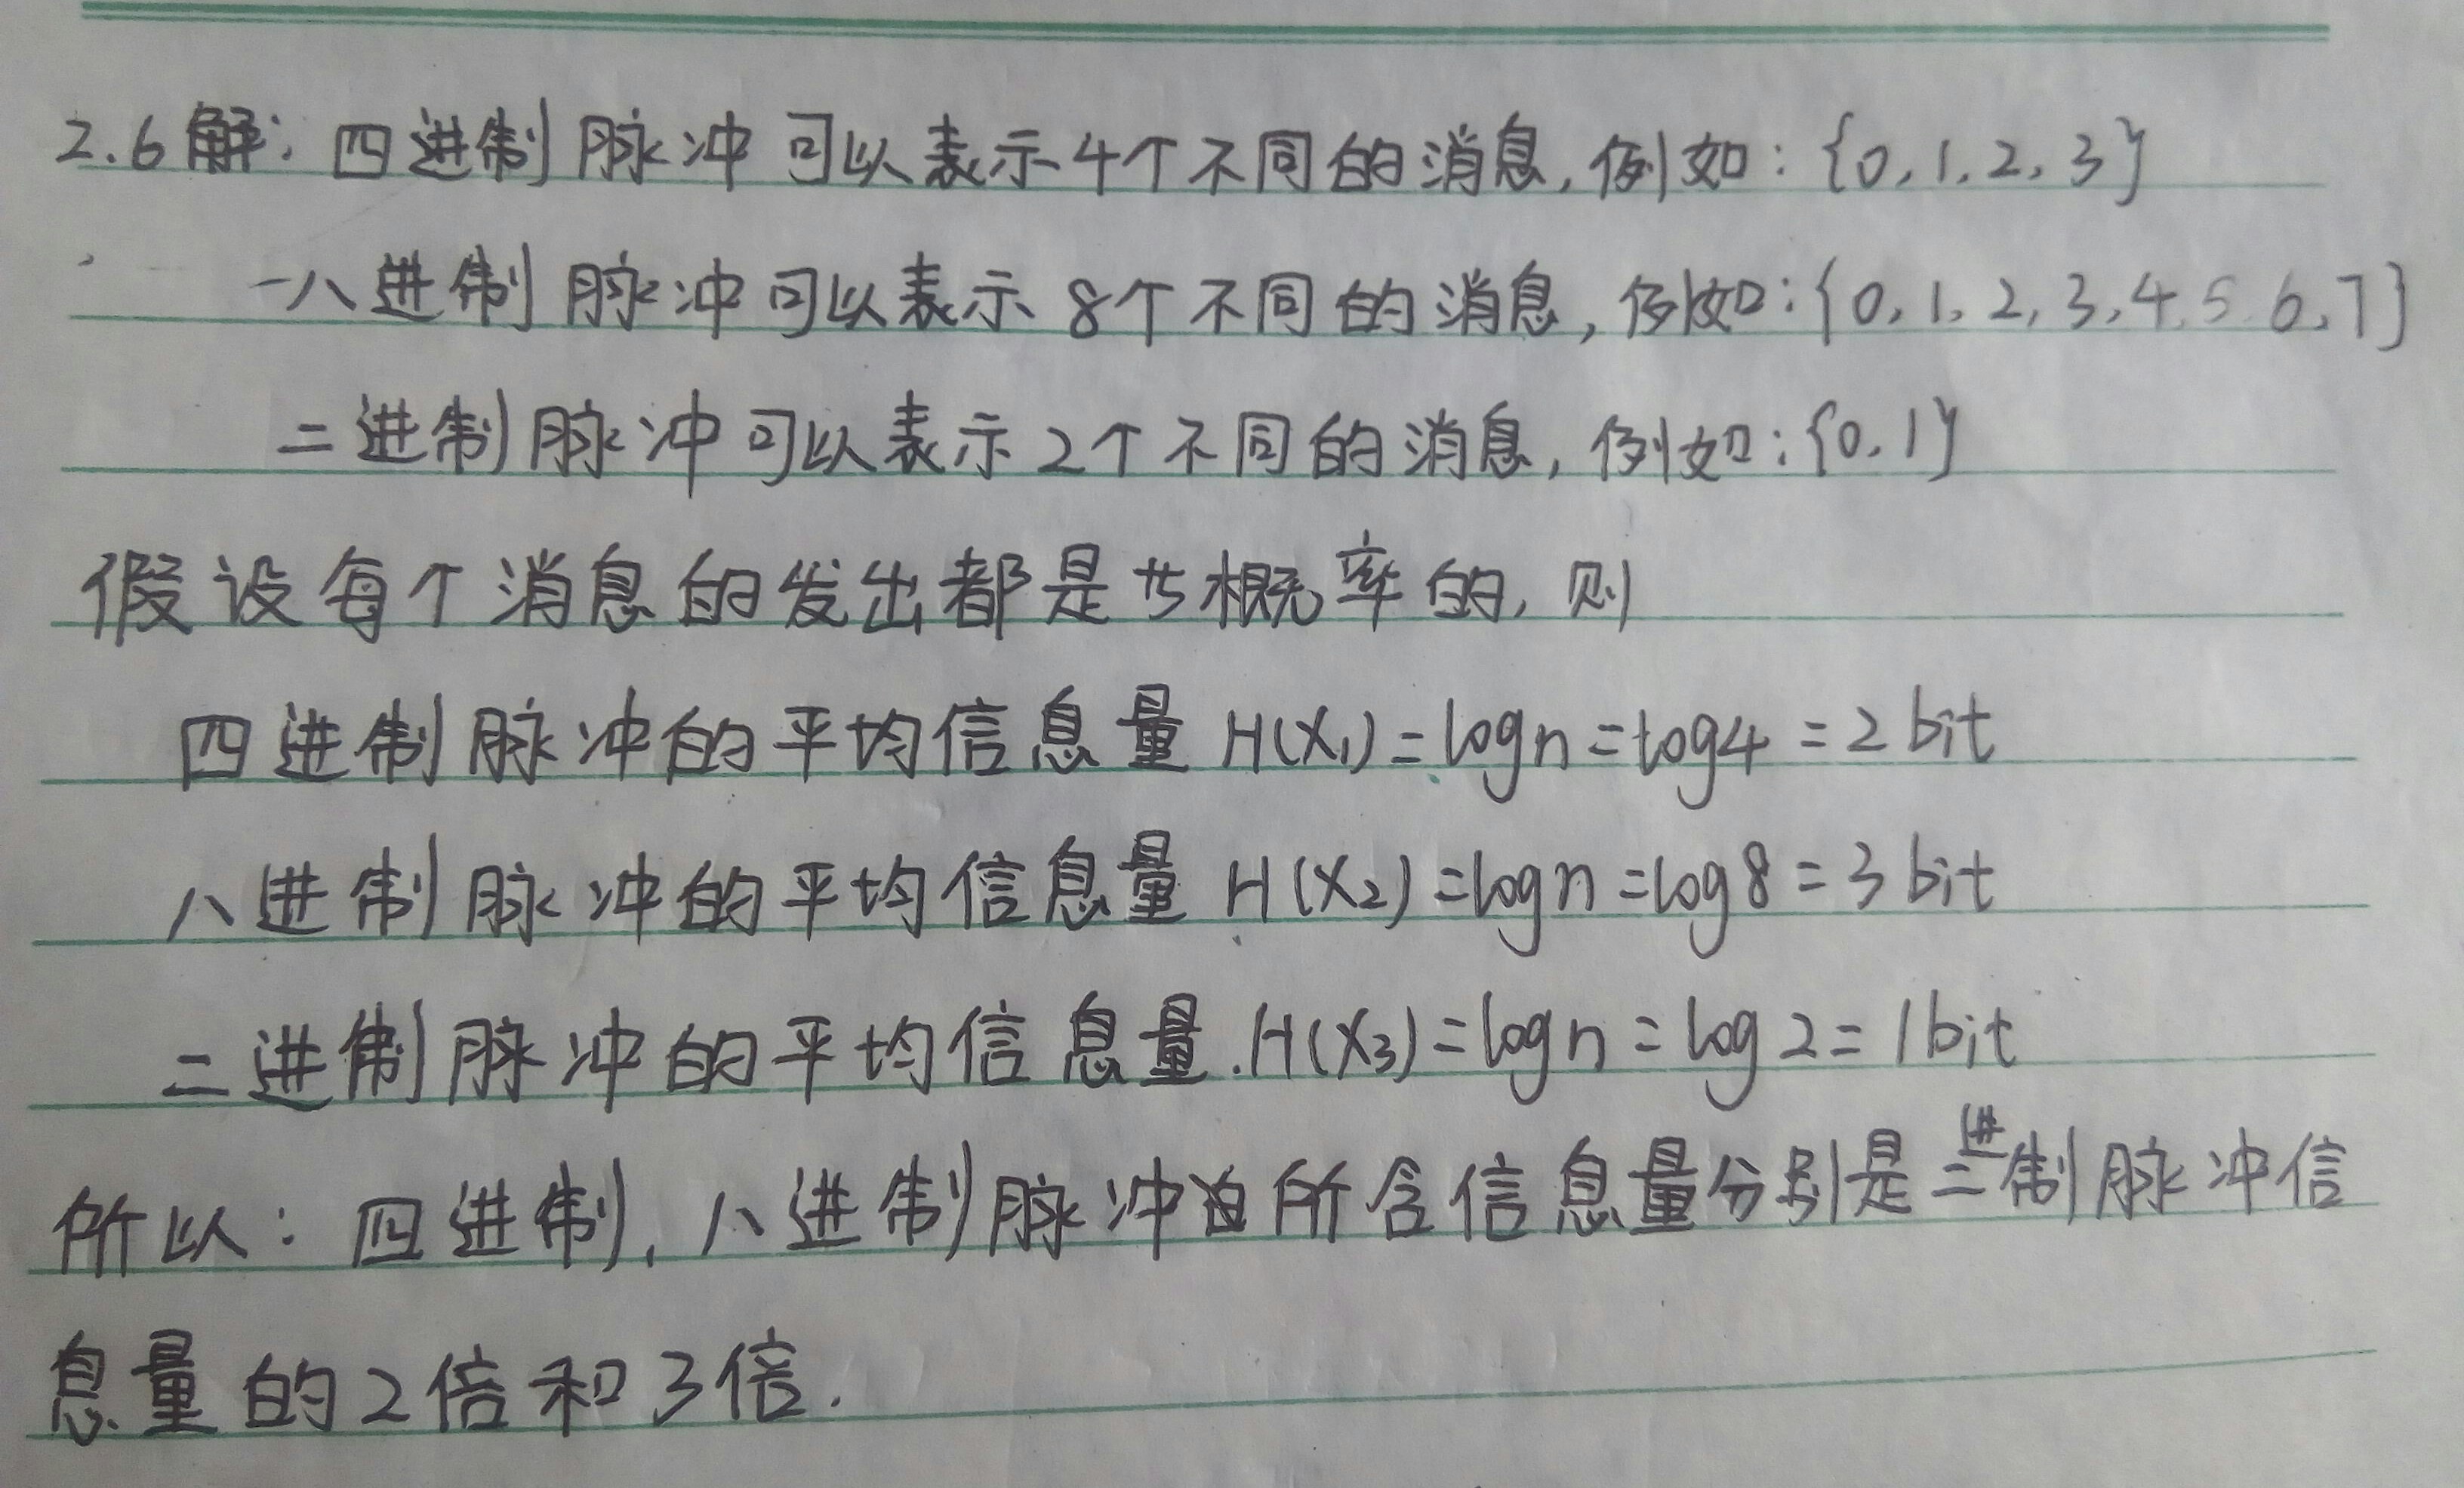 2.6解：四进制脉冲可以表示4个不同的消息,例如：{0,1,2,3}
八进制脉冲可以表示8个不同的消息,例如:{0,1,2,3,4,5,6,7}
二进制脉冲可以表示2个不同的消息,例如:{0,1}
假设每个消息的发出都是等概率的,则
四进制脉冲的平均信息量H(X₁)=logn=log4=2bit
八进制脉冲的平均信息量H(X₂)=logn=log8=3bit
二进制脉冲的平均信息量.H(X₃)=logn=log2=1bit
所以：四进制,八进制脉冲所含信息量分别是二进制脉冲信
息量的2倍和3倍.